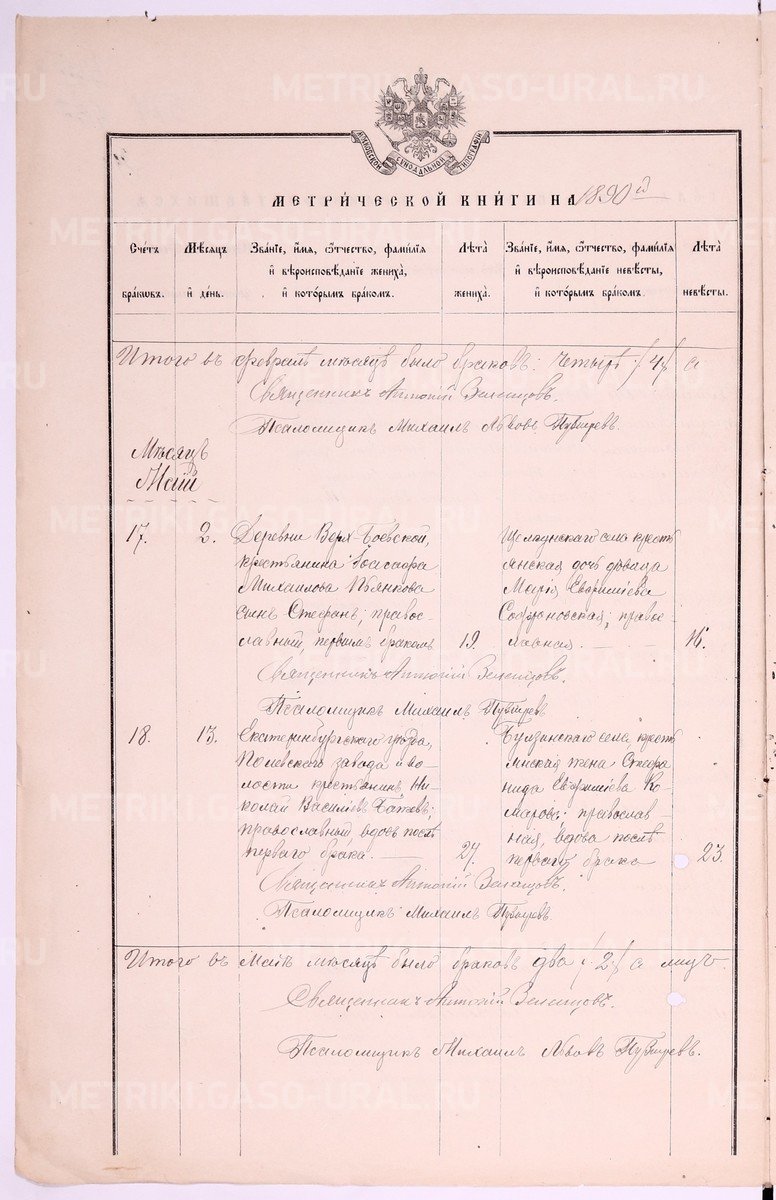 МОСКОВСКОЙ СѴНОДАЛЬНОЙ ТИПОГРАФІИ
МЕТРИ́ЧЕСКОЙ КНИ́ГИ НА 1890 й
Сче́тъ бра́кѡвъ.
Мѣ́сѧцъ и҆ де́нь.
Зва́нїе, и҆́мѧ, ѻ҆́тчество, фами́лїѧ и҆ вѣроисповѣ́данїе жениха̀, и҆ кото́рымъ бра́комъ.
Лѣ̑та жениха̀.
Зва́нїе, и҆́мѧ, ѻ҆́тчество, фами́лїѧ и҆ вѣроисповѣ́данїе невѣ́сты, и҆ кото́рымъ бра́комъ.
Лѣ̑та невѣ́сты.
Итого въ февралѣ мѣсяцѣ было браковъ: четыре /4/ а
Священникъ Антоній
Псаломщикъ Михаилъ Львовъ
Мѣсяцъ
Май
17.
2.
Деревни Верх-Боевской,
крестьянина Іоасафа
Михаилова Пьянкова
сынъ Стефанъ; право-
славный, первымъ бракомъ
19.
Щелкунскаго села крестъ
янская дочь дѣвица
Марія Евфиміева
Софроновская; право-
славная.
16.
Священникъ Антоній
Псаломщикъ Михаилъ
18.
13.
Екатеринбургскаго уѣзда,
Полевскаго завода и во-
лости крестьянинъ Ни-
колай Василіевъ Бажевъ;
православный, вдовъ послѣ
перваго брака.
27.
Булзинскаго села, крестъ
янская жена Стефа-
нида Евфиміева Ко-
марова; православ-
ная, вдова послѣ
перваго брака
23.
Священникъ Антоній
Псаломщикъ Михаилъ
Итого въ Маѣ мѣсяцѣ было браковъ два /2/ а лицъ.
Священникъ Антоній
Псаломщикъ Михаилъ Львовъ
METRIKI.GASO-URAL.RU